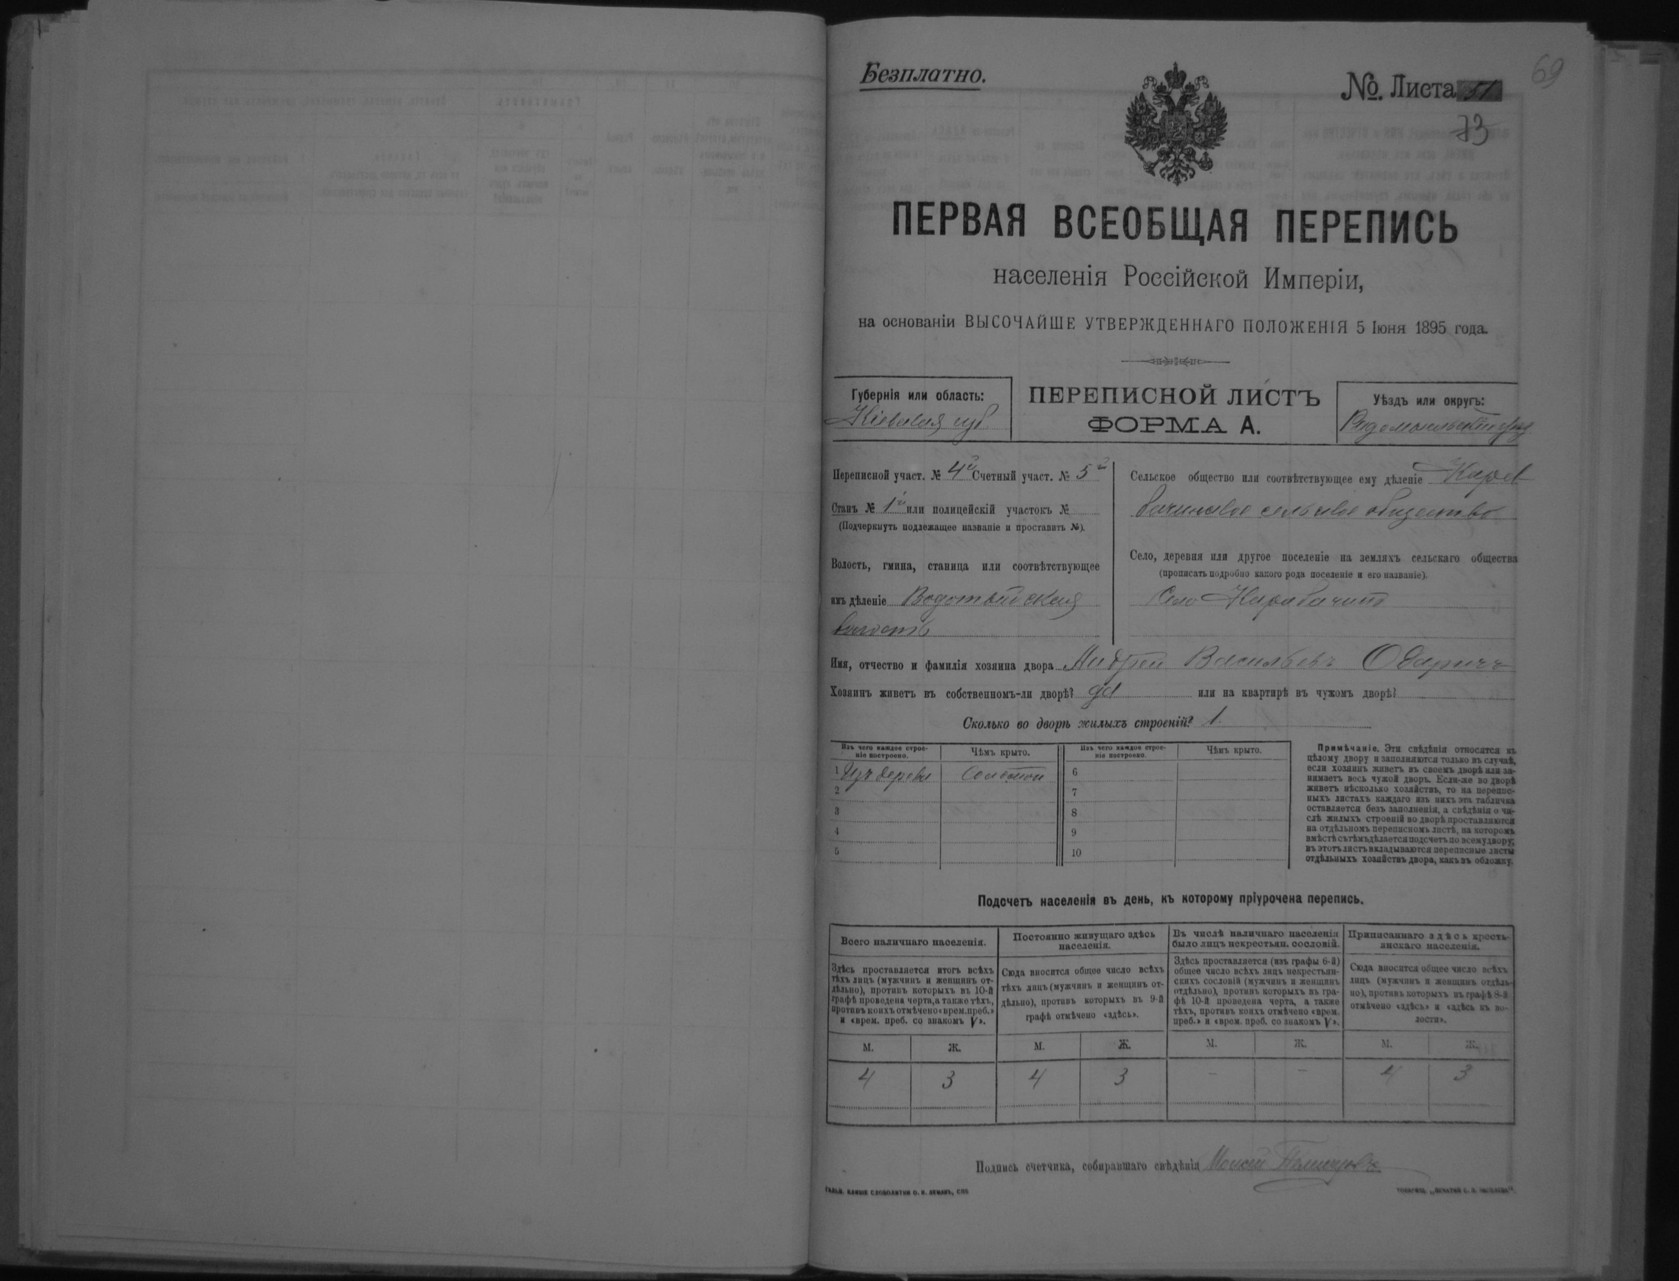 Безплатно.
№. Листа 51
69
73
ПЕРВАЯ ВСЕОБЩАЯ ПЕРЕПИСЬ
населенія Россійской Имперіи,
на основаніи ВЫСОЧАЙШЕ УТВЕРЖДЕННАГО ПОЛОЖЕНІЯ 5 Іюня 1895 года.
Губернія или область:
Кіевская губ
ПЕРЕПИСНОЙ ЛИСТЪ
ФОРМА А.
Уѣздъ или округъ:
Переписной участ. № 4й Счетный участ. № 5й
Станъ № 1й или полицейскій участокъ №
(Подчеркнуть подлежащее названіе и проставить №).
Волость, гмина, станица или соотвѣтствующее
имъ дѣленіе Водотыйская
волость
Сельское общество или соотвѣтствующее ему дѣленіе Караб
бачинское сельское общество
Село, деревня или другое поселеніе на земляхъ сельскаго общества
(прописать подробно какого рода поселеніе и его названіе).
Село Карабачинъ
Имя, отчество и фамилія хозяина двора Андрей Васильевъ
Хозяинъ живетъ въ собственномъ-ли дворѣ? да или на квартирѣ въ чужомъ дворѣ?
Сколько во дворѣ жилыхъ строеній? 1.
Изъ чего каждое строе-
ніе построено.
Чѣмъ крыто.
Изъ чего каждое строе-
ніе построено.
Чѣмъ крыто.
1 Изъ дерева Соломой 6
2 7
3 8
4 9
5 10
Примѣчаніе. Эти свѣдѣнія относятся къ
цѣлому двору и заполняются только въ случаѣ,
если хозяинъ живетъ въ своемъ дворѣ или за-
нимаетъ весь чужой дворъ. Если-же во дворѣ
живетъ нѣсколько хозяйствъ, то на перепис-
ныхъ листахъ каждаго изъ нихъ эта табличка
оставляется безъ заполненія, а свѣдѣнія о чи-
слѣ жилыхъ строеній во дворѣ проставляются
на отдѣльномъ переписномъ листѣ, на которомъ
вмѣстѣ съ тѣмъ дѣлается подсчетъ по всему двору;
въ этотъ листъ вкладываются переписные листы
отдѣльныхъ хозяйствъ двора, какъ въ обложку.
Подсчетъ населенія въ день, къ которому пріурочена перепись.
Всего наличнаго населенія.
Здѣсь проставляется итогъ всѣхъ
тѣхъ лицъ (мужчинъ и женщинъ от-
дѣльно), противъ которыхъ въ 10-й
графѣ проведена черта, а также тѣхъ,
противъ коихъ отмѣчено «врем. преб.»
и «врем. преб. со знакомъ V».
Постоянно живущаго здѣсь
населенія.
Сюда вносится общее число всѣхъ
тѣхъ лицъ (мужчинъ и женщинъ от-
дѣльно), противъ которыхъ въ 9-й
графѣ отмѣчено «здѣсь».
Въ числѣ наличнаго населенія
было лицъ некрестьян. сословій.
Здѣсь проставляется (изъ графы 6-й)
общее число всѣхъ лицъ некрестьян-
скихъ сословій (мужчинъ и женщинъ
отдѣльно), противъ которыхъ въ гра-
фѣ 10-й проведена черта, а также
тѣхъ, противъ коихъ отмѣчено «врем.
преб.» и «врем. преб. со знакомъ V».
Приписаннаго здѣсь кресть-
янскаго населенія.
Сюда вносится общее число всѣхъ
лицъ (мужчинъ и женщинъ отдѣль-
но), противъ которыхъ въ графѣ 8-й
отмѣчено «здѣсь» и «здѣсь въ во-
лости».
М. Ж. М. Ж. М. Ж. М. Ж.
4 3 4 3 - - 4 3
Подпись счетчика, собиравшаго свѣдѣнія